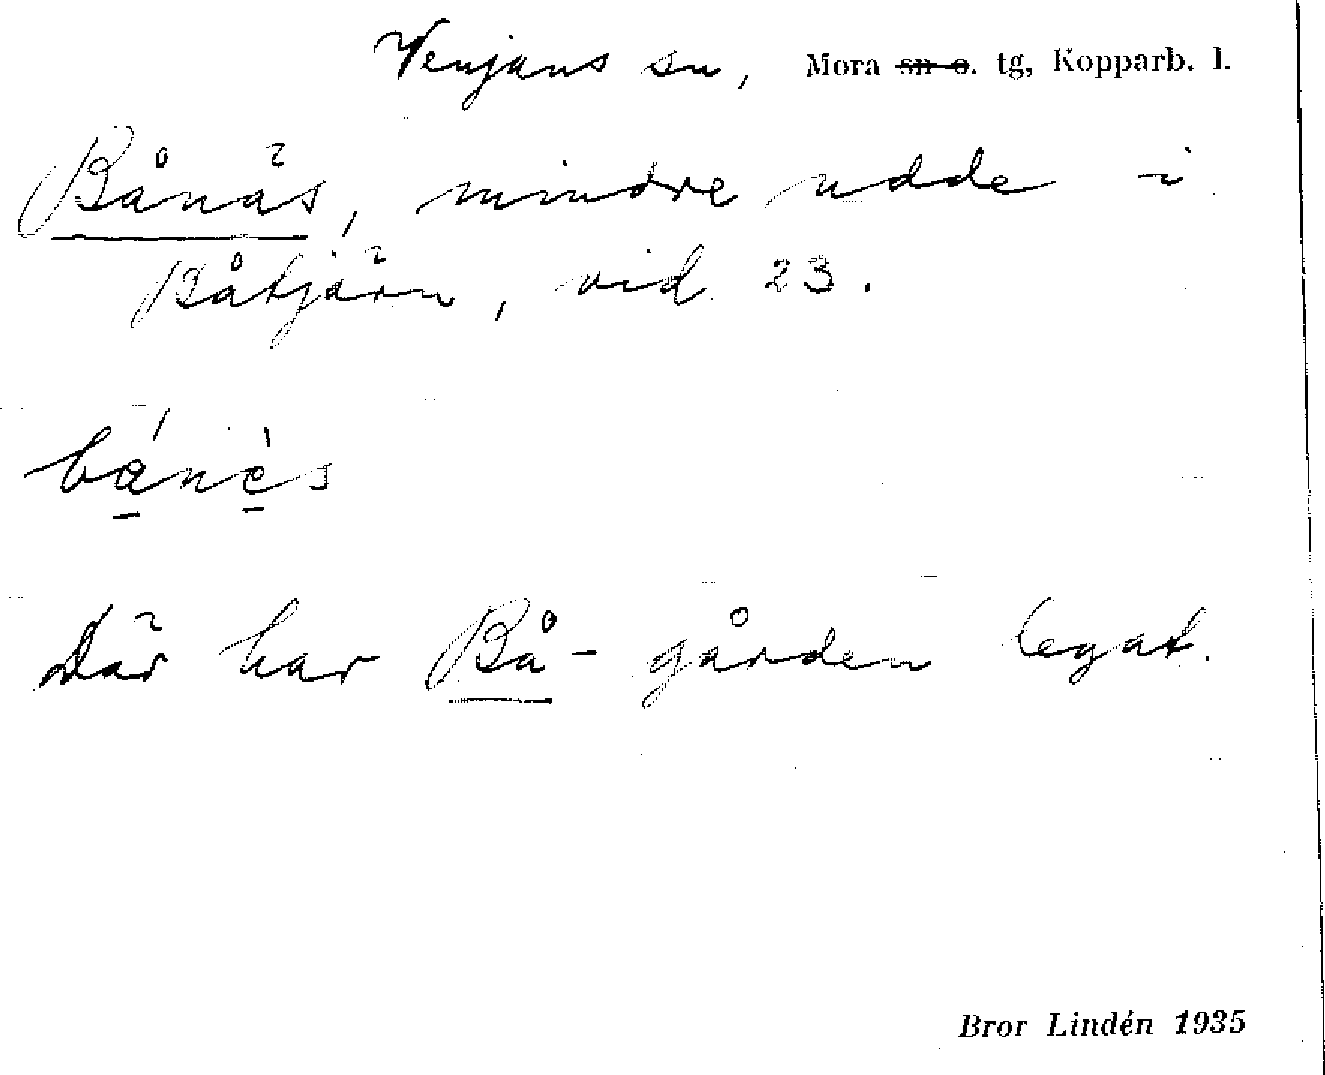 Venjans sn, Mora ~~sn o~~. tg, Kopparb. l.
Bånäs, mindre udde i
Båtjärn, vid 23.
bánès
Där har Bå- gården legat.
Bror Lindén 1935